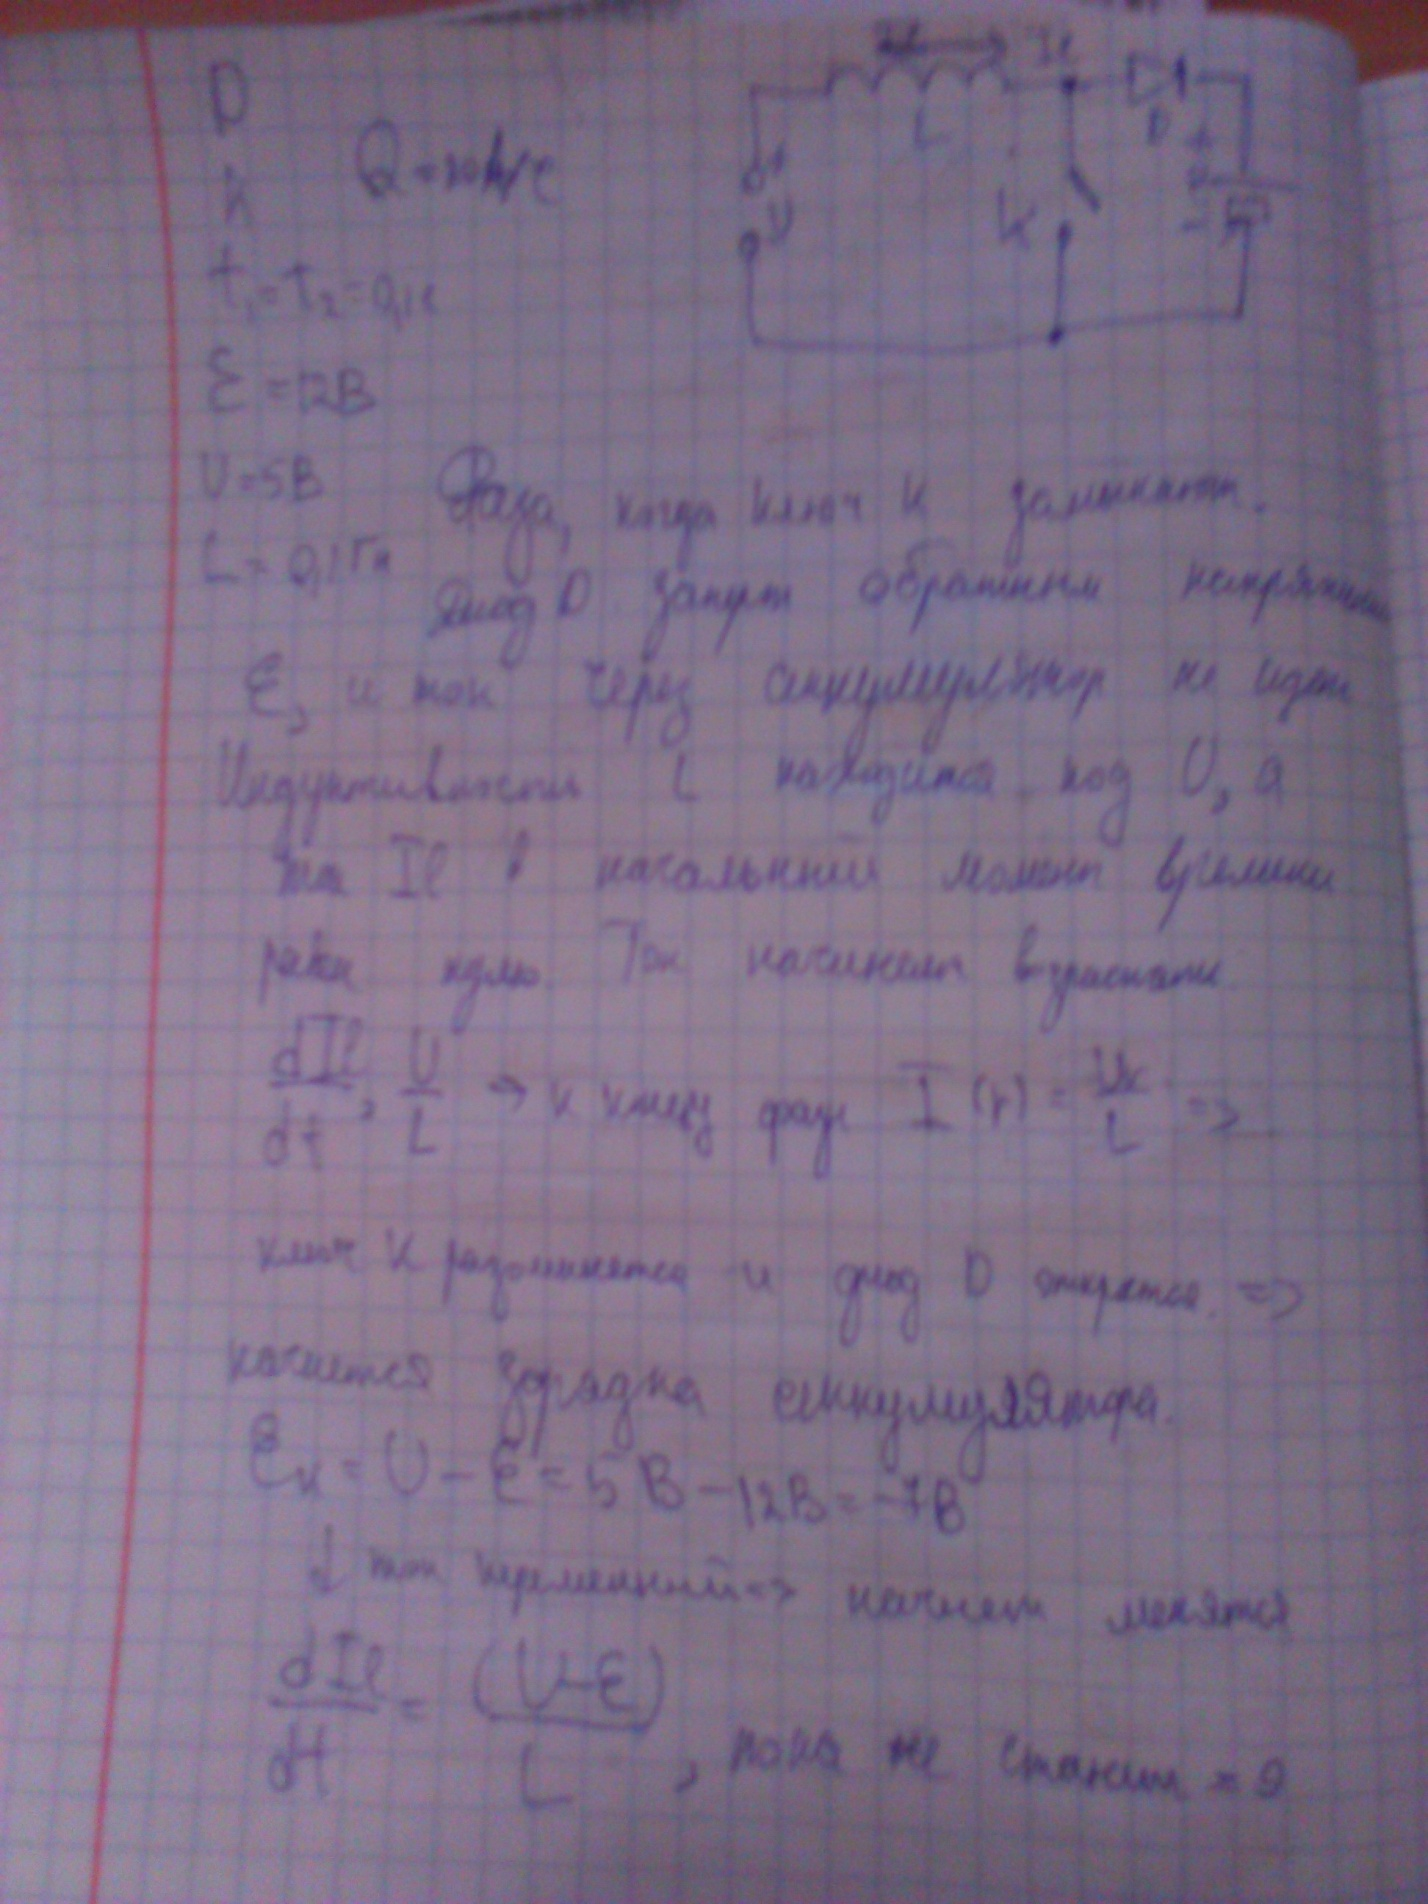 D
K
t₁=t₂=0,1с
Ɛ=12В
U=5В
L=0,1Гн
Il
L
D
+
U
K
+
-
Фаза, когда ключ K замыкают.
Диод D заперт обратным напряжением
Ɛ, и ток через аккумулятор не идет
Индуктивность L находится под U, а
ток Il в начальный момент времени
равен нулю. Ток начинает возрастать
dIl/dt, U/L → к концу фазы I(t) = /L =>
ключ K разомкнется и диод D откроется. =>
начнется зарядка аккумулятора.
Ɛк = U - Ɛ = 5В - 12В = -7В
↓ ток переменный => начнет менятся
dIl/dt = (U-Ɛ)/L, пока не станет =